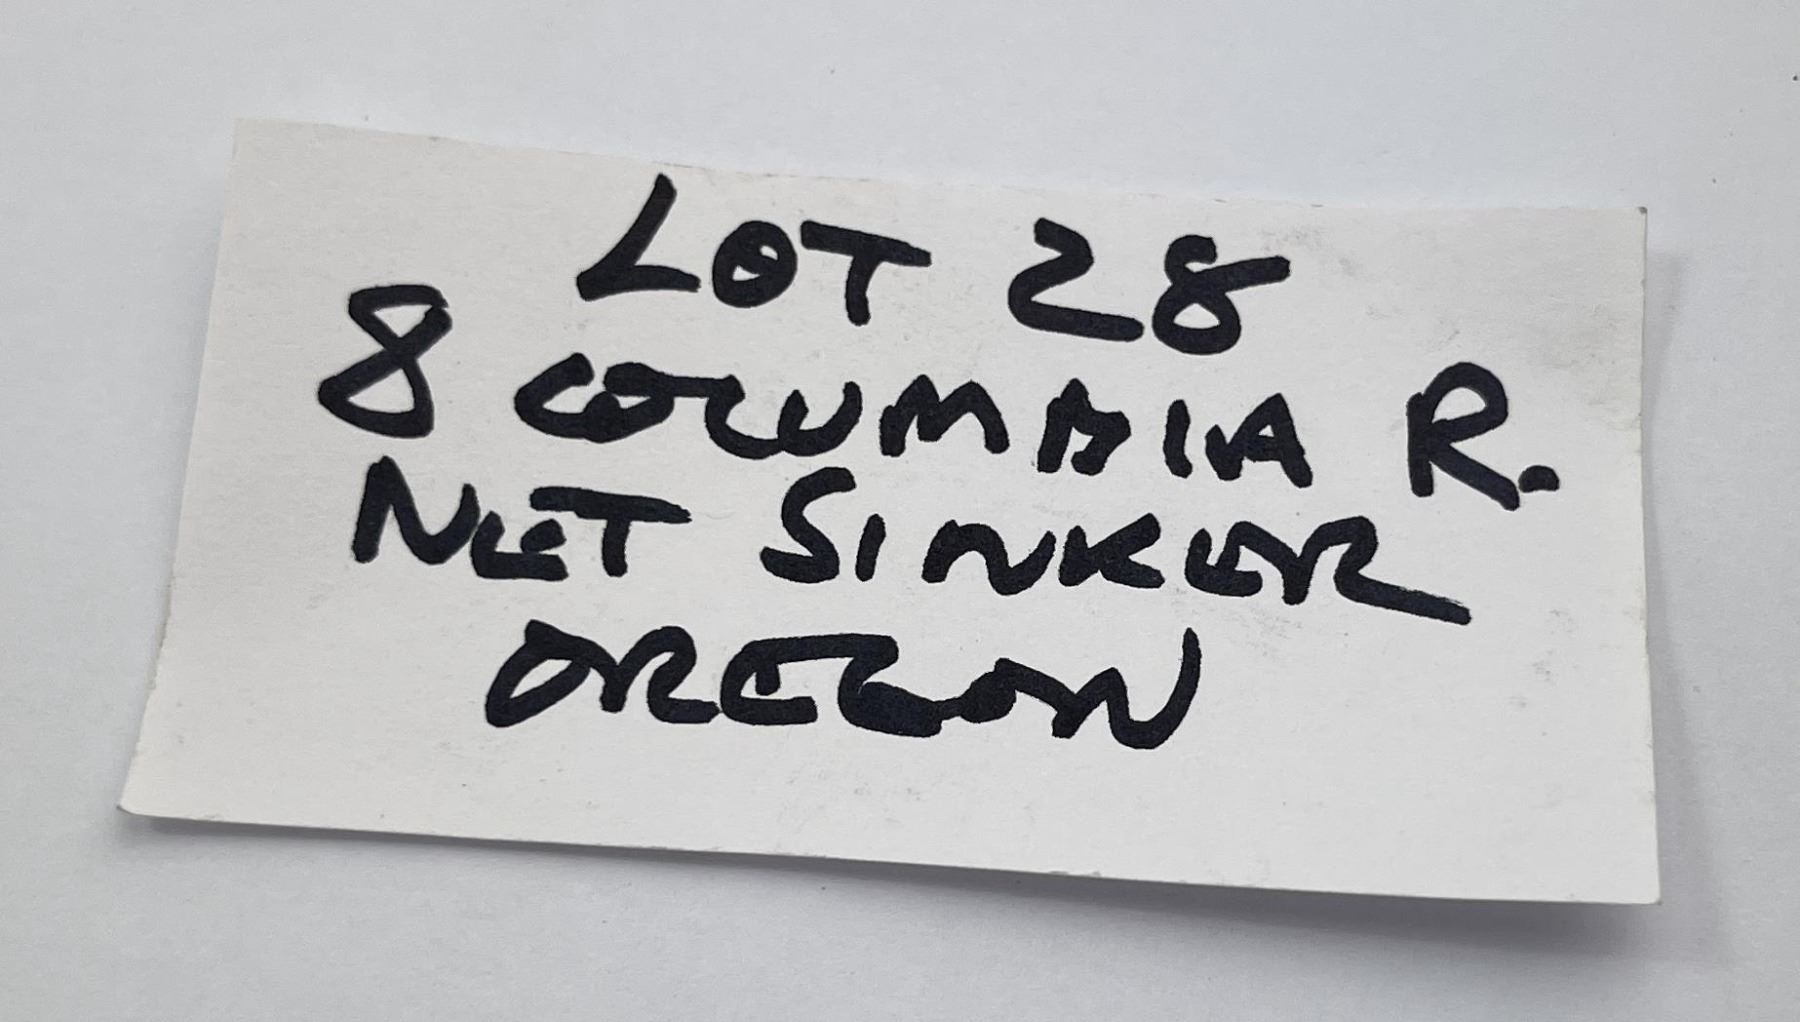 LOT 28
8 COLUMBIA R.
NET SINKER
OREGON